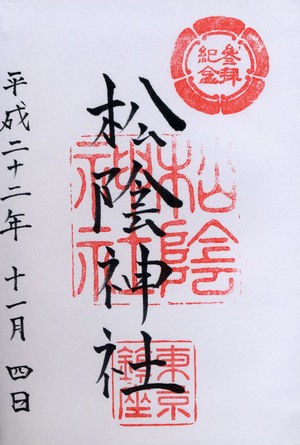 參拜
紀念
松陰神社
松陰
神社
東京
鎮座
平成二十二年 十一月 四日